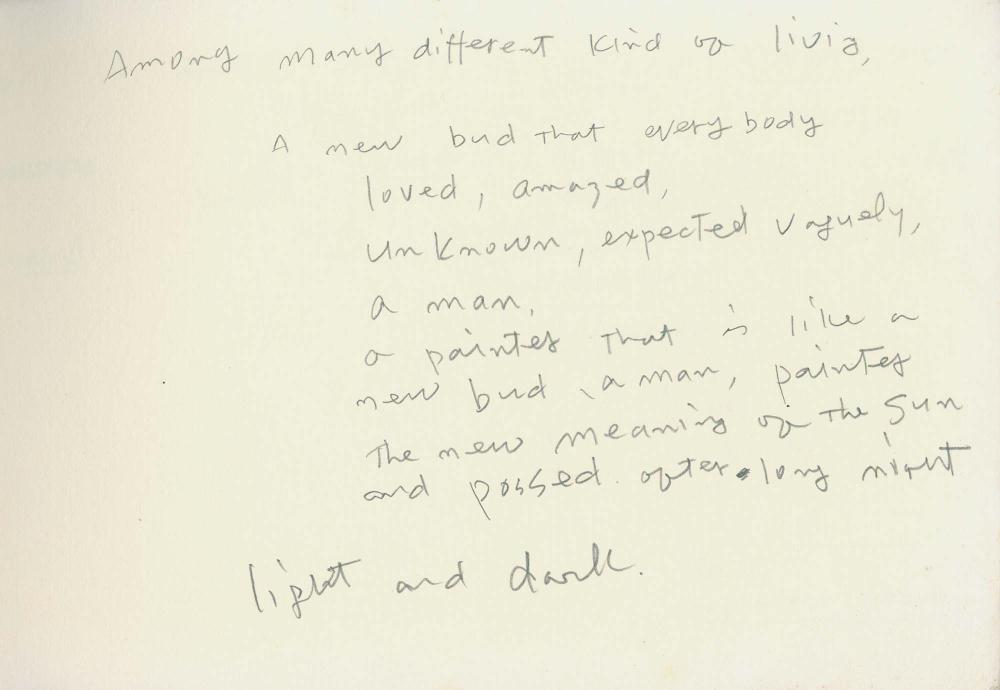 Among many different kind of livig,
A new bud that everybody
loved, amazed,
unknown, expected vaguely,
a man,
a painter that is like a
new bud, a man, painter
the new meaning of the sun
and possed. after long night
light and dark.